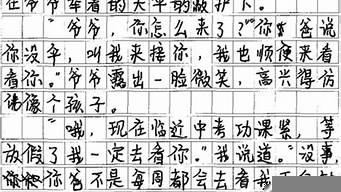 在爷爷牵着的大伞的庇护下。
"爷爷，你怎么来了？""你爸说
你没伞，叫我来接你，我也顺便来看
看你。"爷爷露出一脸微笑，高兴得仿
佛像个孩子。
"哦，现在临近中考功课紧，等
放假了我一定去看你。"我说道。"没事，
你和你爸不是每周都会去看我